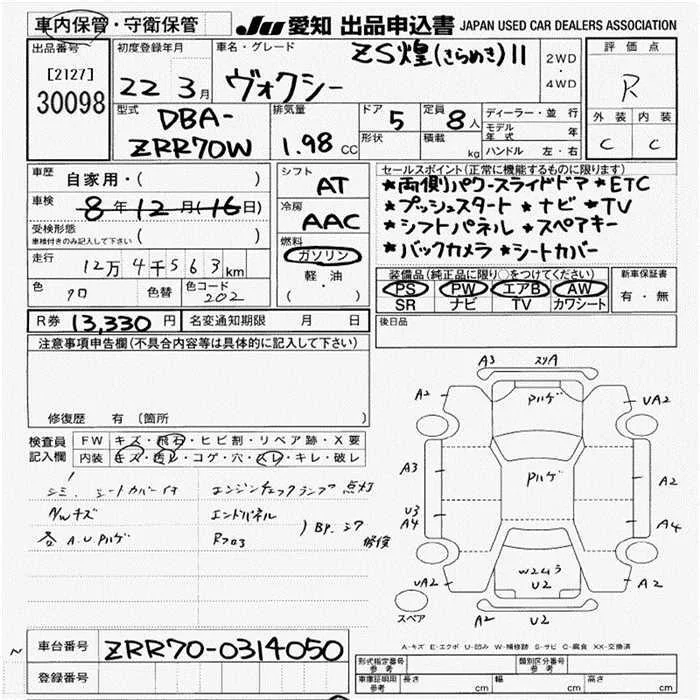 車内保管・守衛保管
JU 愛知 出品申込書 JAPAN USED CAR DEALERS ASSOCIATION
出品番号
[2127]
30098
初度登録年月
22 3月
車名・グレード
ZS煌(きらめき)II
ヴォクシー
2WD
・
4WD
評価点
R
外装 内装
C C
型式
DBA-
ZRR70W
排気量
1.98 CC
ドア 5
形状
定員 8人
積載 kg
ディーラー・並行
モデル年式 年
ハンドル 左・右
車歴 自家用・( )
車検 8年12月(16日)
受検形態
車検付きのみ記入して下さい ( )
走行 12万4千563km
色 クロ 色替 色コード 202
シフト
AT
冷房
AAC
燃料
ガソリン
軽油
( ・ )
セールスポイント(正常に機能するものに限ります)
★両側パワースライドドア ★ETC
★プッシュスタート ★ナビ ★TV
★シフトパネル ★スペアキー
★バックカメラ ★シートカバー
装備品(純正品に限り○をつけてください)
PS PW エアB AW
SR ナビ TV カワシート
新車保証書
有・無
R券 13,330円 名変通知期限 月 日
後日品
注意事項申告欄(不具合内容等は具体的に記入して下さい)
修復歴 有 〔箇所 〕
検査員記入欄
FW キズ・飛石・ヒビ割・リペア跡・X要
内装 キズ・汚レ・コゲ・穴・スレ・キレ・破レ
シミ シートカバー付 エンジンチェックランプ点灯
AWキズ エンドパネル
A.U.Pハゲ Rフロア Bp.シワ 修復
A3 スリA
A2 Pハゲ UA2
A3 Pハゲ A2
U3
A4 A4
UA2 W2ムラ A2
U2
スペア
A2 U2
A-キズ E-エクボ U-凹み W-補修跡 S-サビ C-腐食 XX-交換済
車台番号 ZRR70-0314050
登録番号
形式指定番号 参考
類別区分番号 参考
車庫証明用 参考 長さ cm 幅 cm 高さ cm